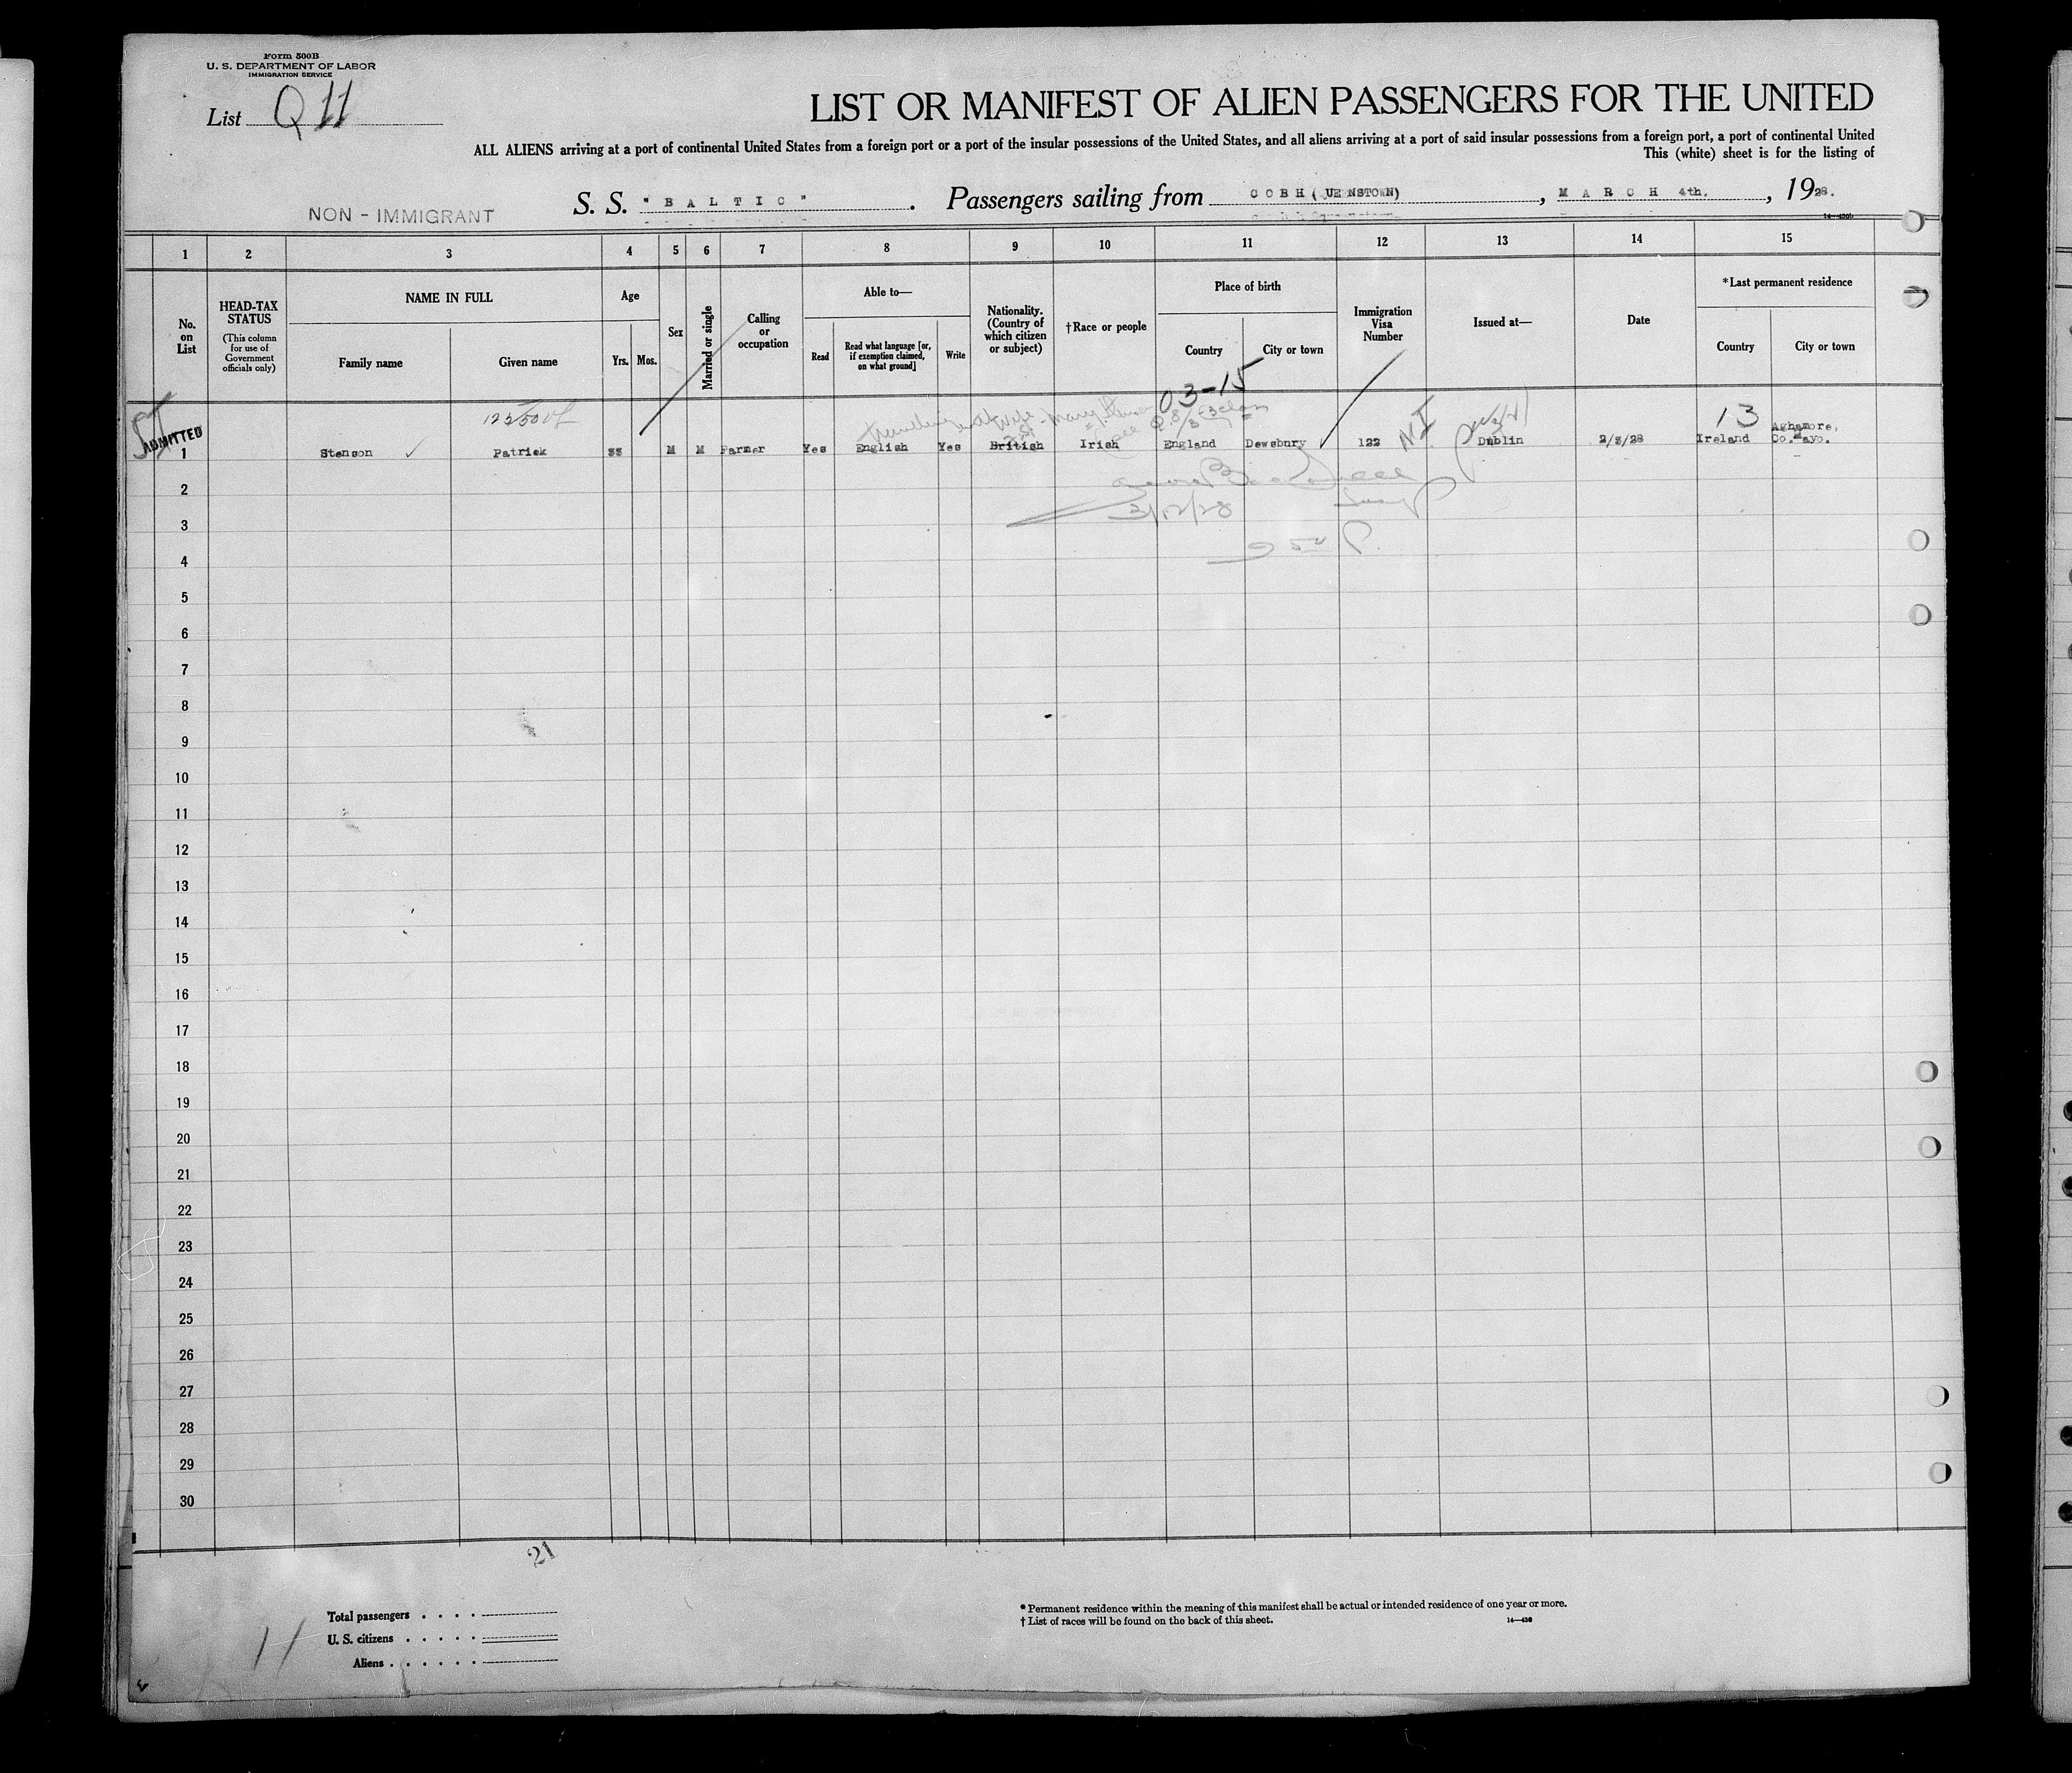 Form 500B
U. S. DEPARTMENT OF LABOR
IMMIGRATION SERVICE
List Q 11
LIST OR MANIFEST OF ALIEN PASSENGERS FOR THE UNITED
ALL ALIENS arriving at a port of continental United States from a foreign port or a port of the insular possessions of the United States, and all aliens arriving at a port of said insular possessions from a foreign port, a port of continental United
This (white) sheet is for the listing of
NON - IMMIGRANT
S. S. " B A L T I C " . Passengers sailing from C O B H ( UEENSTOWN) , M A R C H 4th. , 1928.
1 2 3 4 5 6 7 8 9 10 11 12 13 14 15
No. on List
HEAD-TAX STATUS
(This column for use of Government officials only)
NAME IN FULL
Family name
Given name
Age
Yrs.
Mos.
Sex
Married or single
Calling or occupation
Able to—
Read
Read what language [or, if exemption claimed, on what ground]
Write
Nationality. (Country of which citizen or subject)
†Race or people
Place of birth
Country
City or town
Immigration Visa Number
Issued at—
Date
*Last permanent residence
Country
City or town
03-15
13
ADMITTED
1 Stenson ✓ Patrick 33 M M Farmer Yes English Yes British Irish England Dewsbury 122 NI Dublin 2/3/28 Ireland Aghamore, Co. Mayo.
2
3 3/12/28
4
5
6
7
8
9
10
11
12
13
14
15
16
17
18
19
20
21
22
23
24
25
26
27
28
29
30
21
Total passengers . . . .
U. S. citizens . . . . .
Aliens . . . . . .
11
* Permanent residence within the meaning of this manifest shall be actual or intended residence of one year or more.
† List of races will be found on the back of this sheet.
14—430